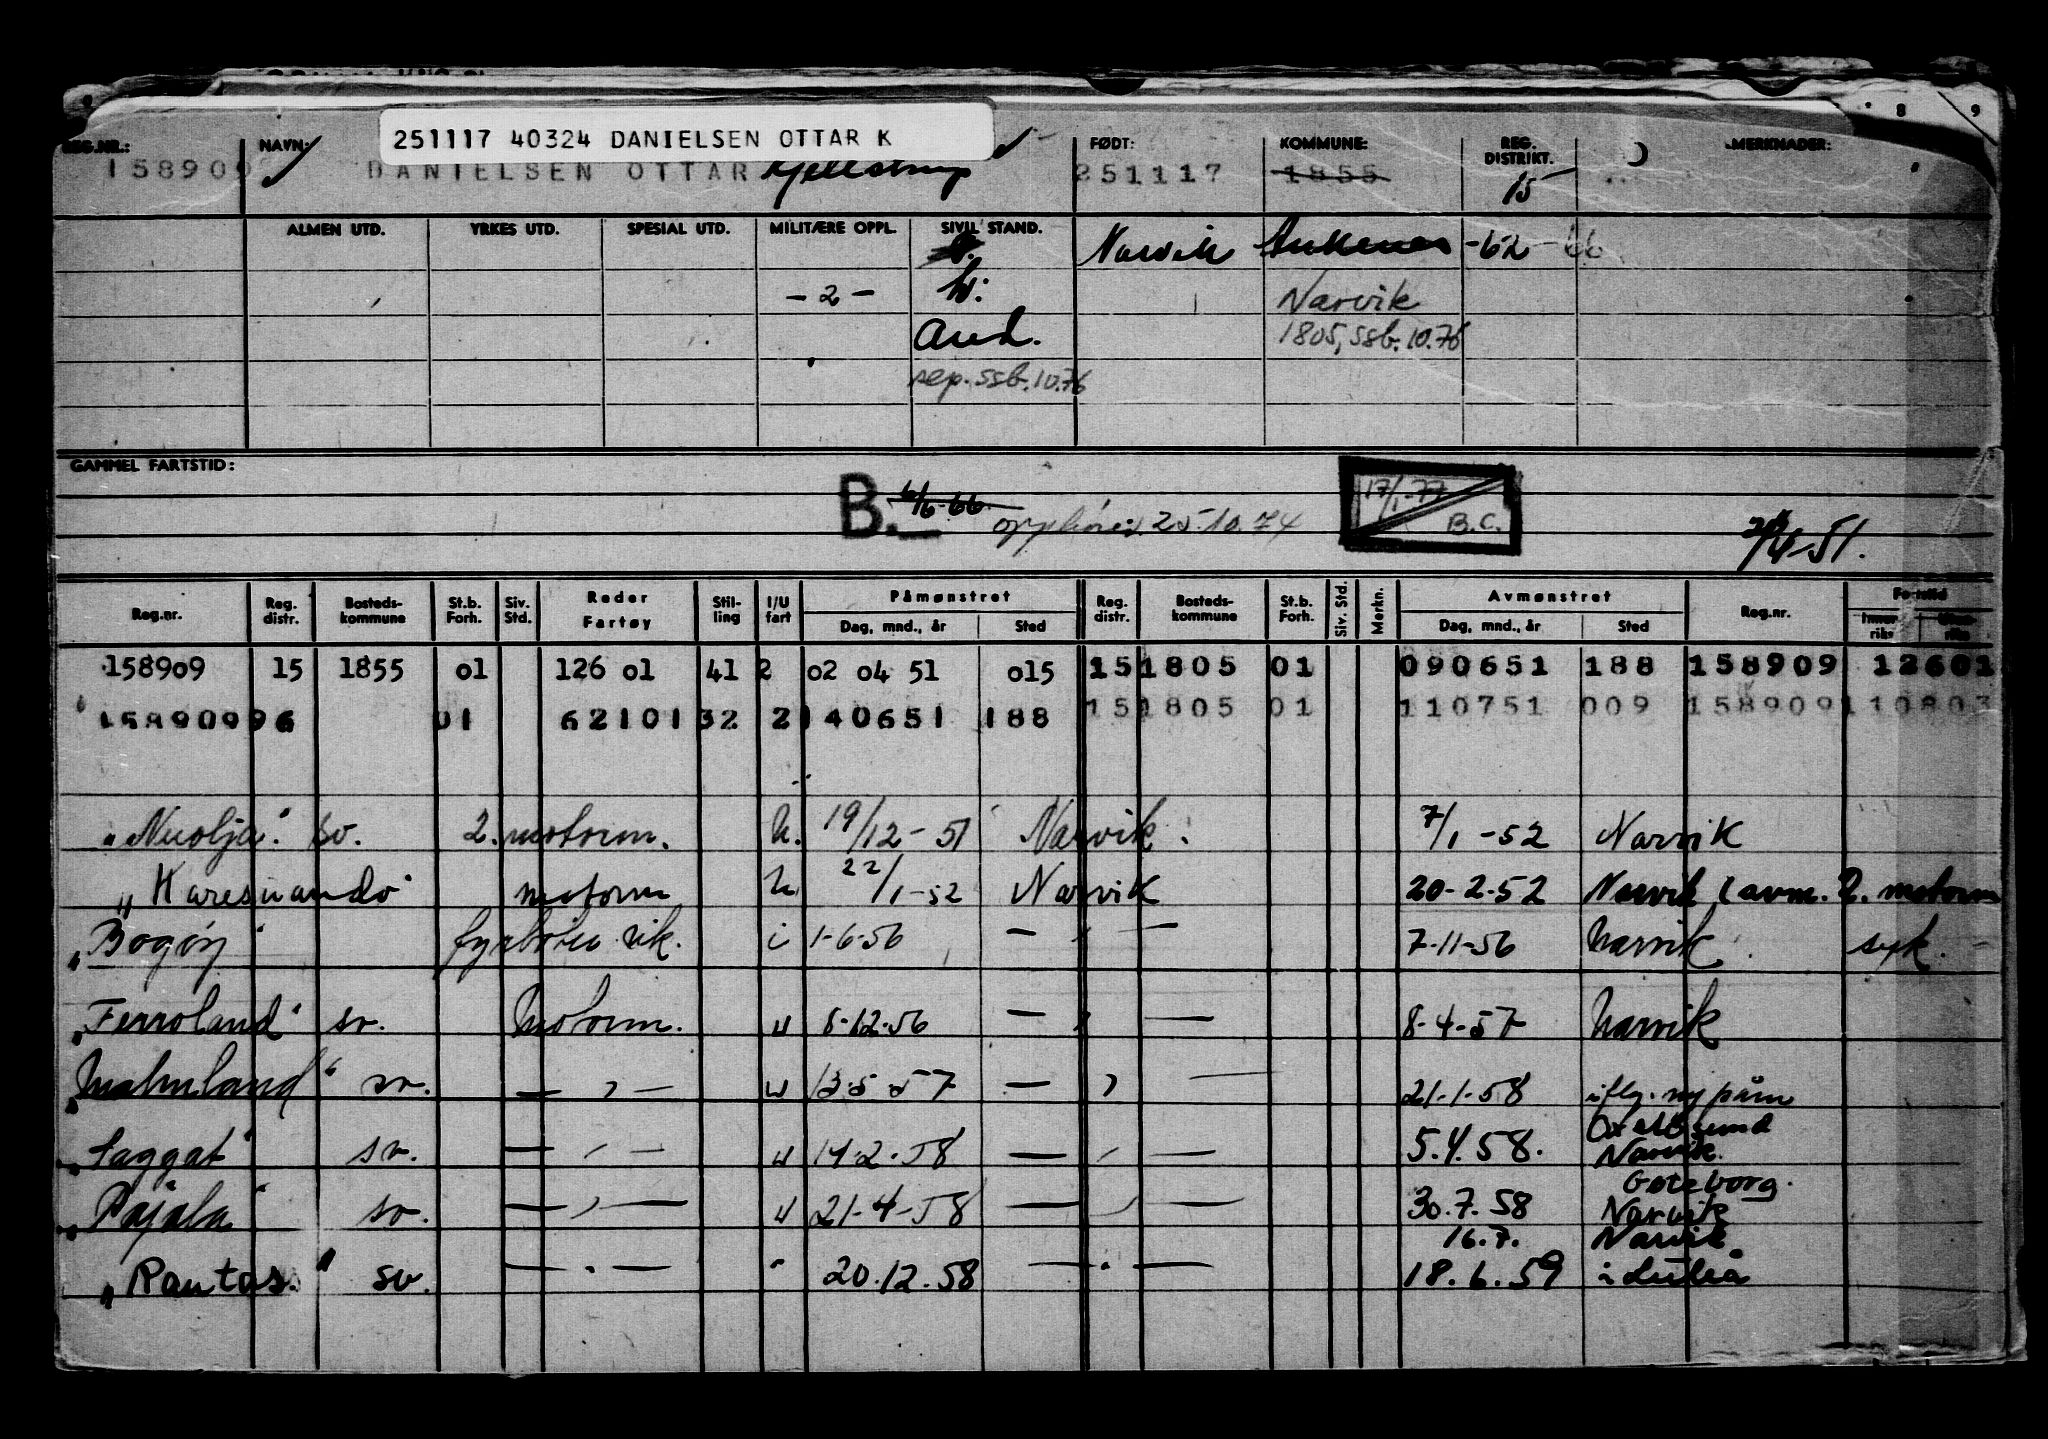 251117 40324 DANIELSEN OTTAR K
REG.NR.: NAVN: FØDT: KOMMUNE: REG. DISTRIKT. MERKNADER:
158909 DANIELSEN OTTAR 251117 1855 15
ALMEN UTD. YRKES UTD. SPESIAL UTD. MILITÆRE OPPL. SIVIL STAND. Narvik Ankenes -62 -66
-2- Narvik
1805, ssb. 10.76
sep. ssb. 10.76
GAMMEL FARTSTID:
B. 6/6-66 opphører 25.10.74 17/1-77 B.C.
Reg.nr. Reg. distr. Bosteds-kommune St.b. Forh. Siv. Std. Reder Fartøy Stil-ling I/U fart Påmønstret Reg. distr. Bosteds-kommune St.b. Forh. Siv. Std. Merkn. Avmønstret Reg.nr. Fartstid
Dag, mnd., år Sted Dag, mnd., år Sted Innenriks Utenriks
158909 15 1855 01 126 01 41 2 02 04 51 015 15 1805 01 090651 188 158909 12601
158909 96 01 62101 32 2 140651 188 15 1805 01 110751 009 158909 110803
"Nuolja" sv. 2. motorm. u. 19/12-51 Narvik. 7/1-52 Narvik
"Karesuando" motorm u 22/1-52 Narvik 20-2-52 Narvik (avm. 2. motorm
"Bogøy" fyrbøter vik. i 1-6-56 — " — 7-11-56 Narvik syk.
"Ferroland" sv. Motorm. u 8-12-56 — " — 8-4-57 Narvik
"Malmland" sv. — " — u 13-5-57 — " — 21-1-58 iflg. ny påm
"Saggat" sv. — " — u 14-2-58 — " — 5.4.58. Oxelösund Narvik.
"Pajala" sv. — " — u 21-4-58 — " — 30.7.58 Göteborg. Narvik
"Rautas." sv. — " — " 20.12.58 — " — 16.7. Narvik
18.6.59 i Luleå